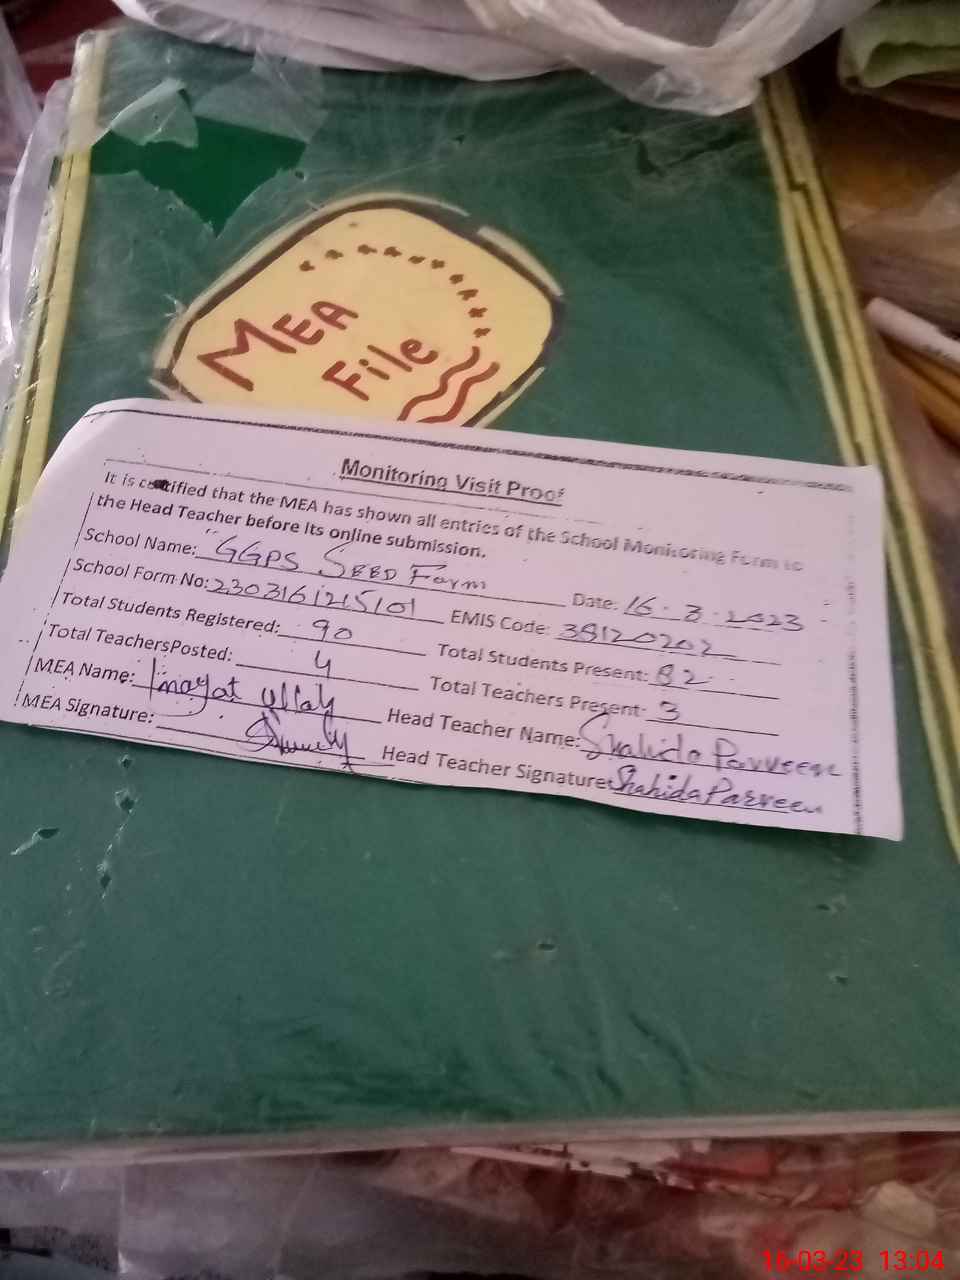 MEA
File
Monitoring Visit Proof
It is certified that the MEA has shown all entries of the School Monitoring Form to
the Head Teacher before its online submission.
School Name: GGPS Seed Farm Date: 16-3-2023
School Form No: 2303161215101 EMIS Code: 38120202
Total Students Registered: 90 Total Students Present: 82
Total TeachersPosted: 4 Total Teachers Present: 3
MEA Name: Inayat Ullah Head Teacher Name: Shahida Parveen
MEA Signature: Head Teacher Signature: Shahida Parveen
16-03-23 13:04